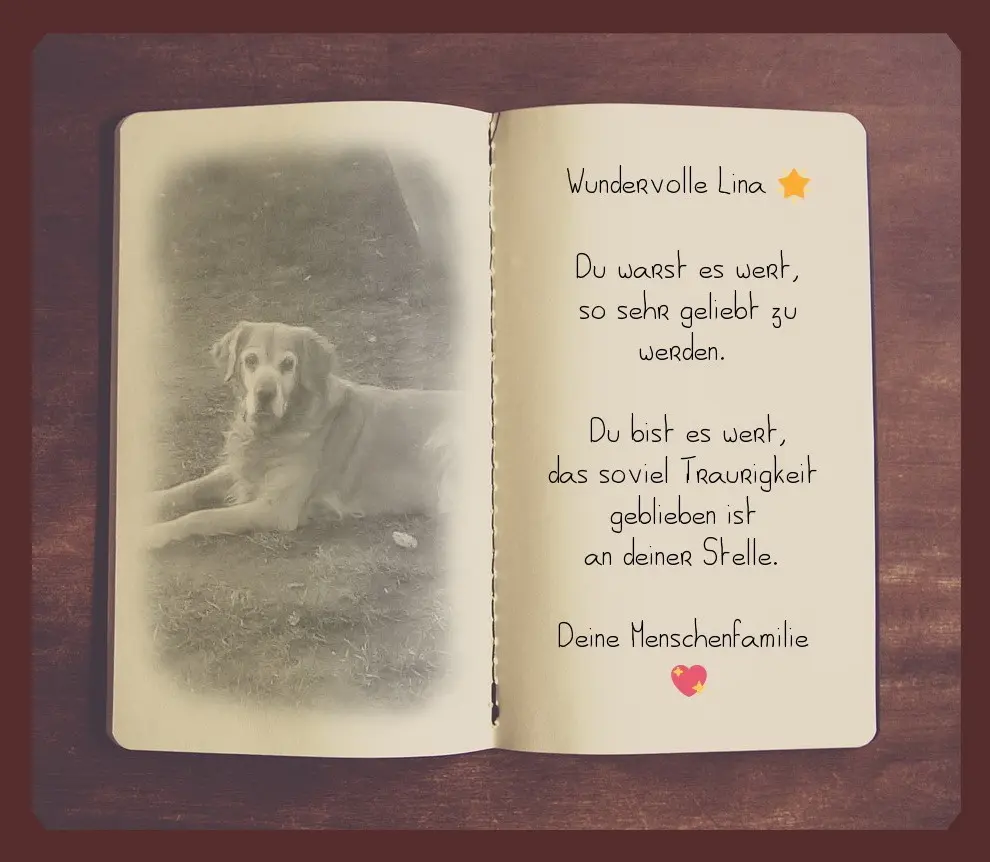 Wundervolle Lina ⭐
Du warst es wert,
so sehr geliebt zu
werden.
Du bist es wert,
das soviel Traurigkeit
geblieben ist
an deiner Stelle.
Deine Menschenfamilie
💖